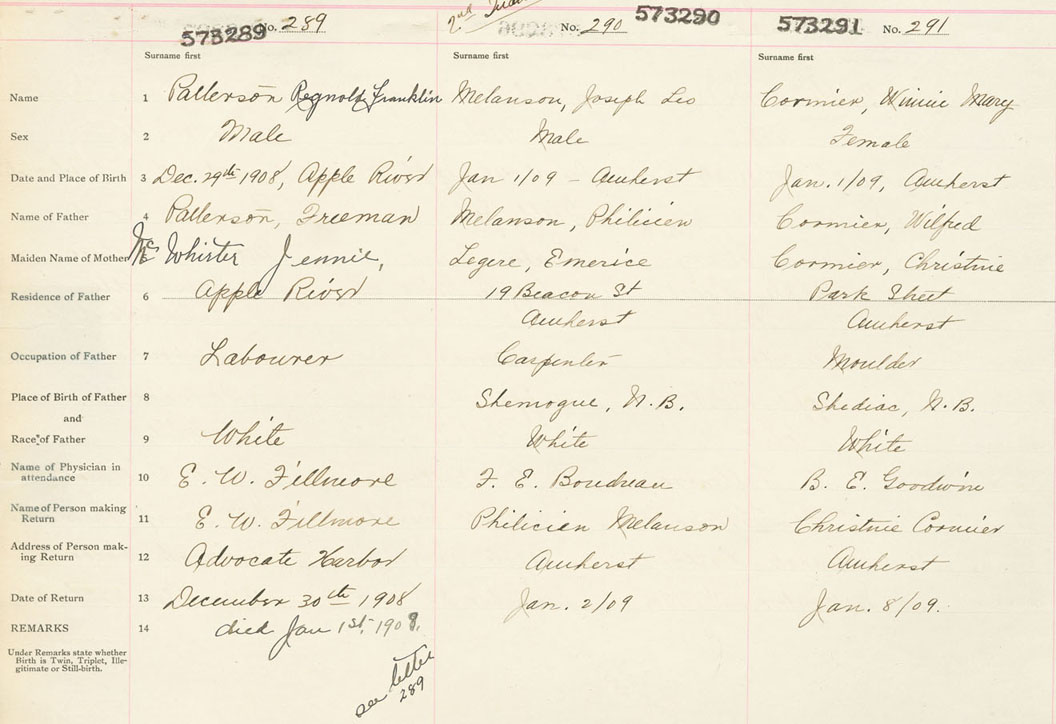 573289 No. 289
2nd No. 290 573290
573291 No. 291
Surname first Surname first Surname first
Name 1 Patterson Regnold Franklin Melanson, Joseph Leo Cormier, Winnie Mary
Sex 2 Male Male Female
Date and Place of Birth 3 Dec. 29th 1908, Apple River Jan 1/09 - Amherst Jan. 1/09, Amherst
Name of Father 4 Patterson, Freeman Melanson, Philicien Cormier, Wilfred
Maiden Name of Mother 5 Mc Whirter Jennie, Legere, Emerice Cormier, Christine
Residence of Father 6 Apple River 19 Beacon St Park Street
Amherst Amherst
Occupation of Father 7 Labourer Carpenter Moulder
Place of Birth of Father 8 Shemogue, N.B. Shediac, N.B.
and
Race of Father 9 White White White
Name of Physician in
attendance 10 E. W. Fillmore F. E. Boudreau B. E. Goodwin
Name of Person making
Return 11 E. W. Fillmore Philicien Melanson Christine Cormier
Address of Person mak-
ing Return 12 Advocate Harbor Amherst Amherst
Date of Return 13 December 30th 1908 Jan. 2/09 Jan. 8/09.
REMARKS 14 died Jan 1st, 1908.
Under Remarks state whether
Birth is Twin, Triplet, Ille-
gitimate or Still-birth.
see letter
289